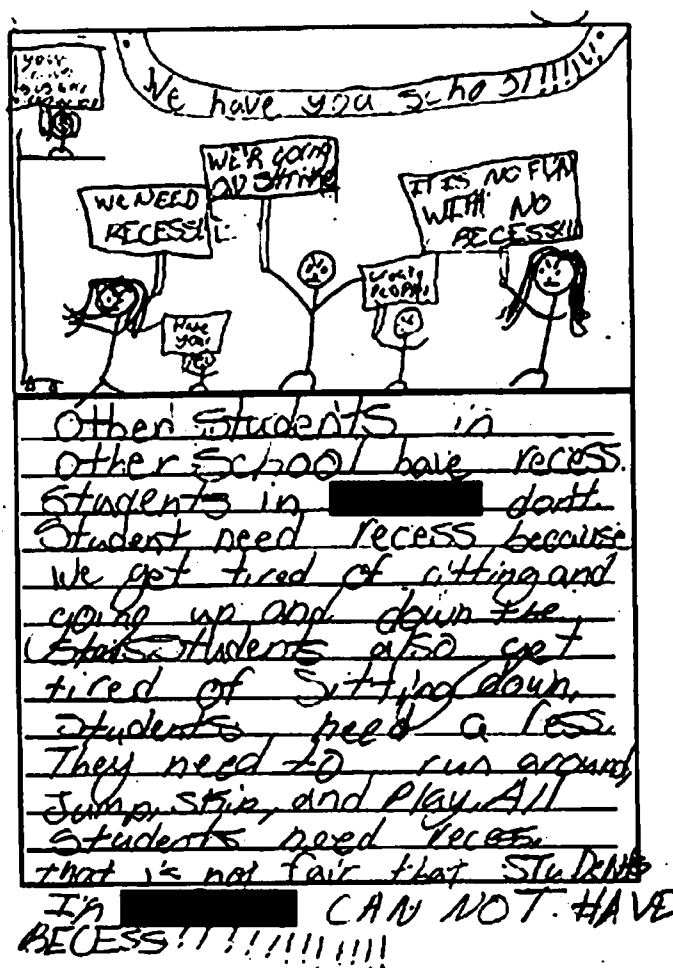 We have you school!!!!!
your
WE'R going
ON Strike
WE NEED
RECESS!!!
IT IS NO FUN
WITH NO
RECESS!!!!
Have
you
Other Students in
other School have recess.
Students in dont.
Student need recess because
We get tired of sitting and
going up and down the
Stairs. Students also get
tired of Sitting down,
Students need a ress.
They need to run around,
Jump, Skip, and Play. All
Students need recess.
that is not fair that STUDENTS
In CAN NOT HAVE
RECESS!!!!!!!!!!!